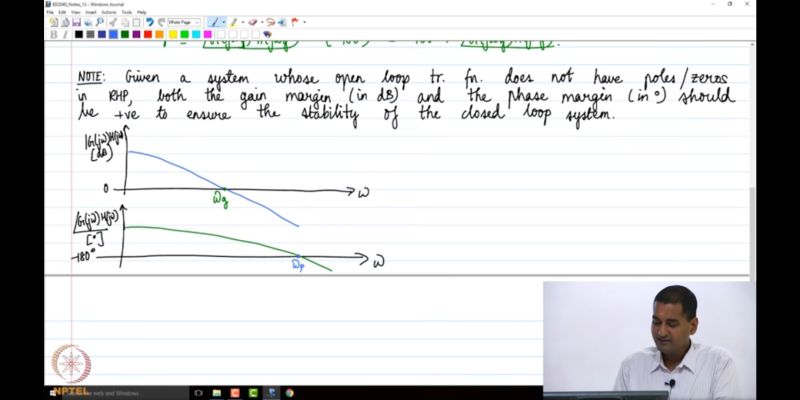 ED2040_Notes_13 - Windows Journal
File Edit View Insert Actions Tools Help
NOTE: Given a system whose open loop tr. fn. does not have poles/zeros
in RHP, both the gain margin (in dB) and the phase margin (in °) should
be +ve to ensure the stability of the closed loop system.
|G(jω)H(jω)|
[dB]
0
ωg
ω
∠G(jω)H(jω)
[°]
-180°
ωp
ω
NPTEL